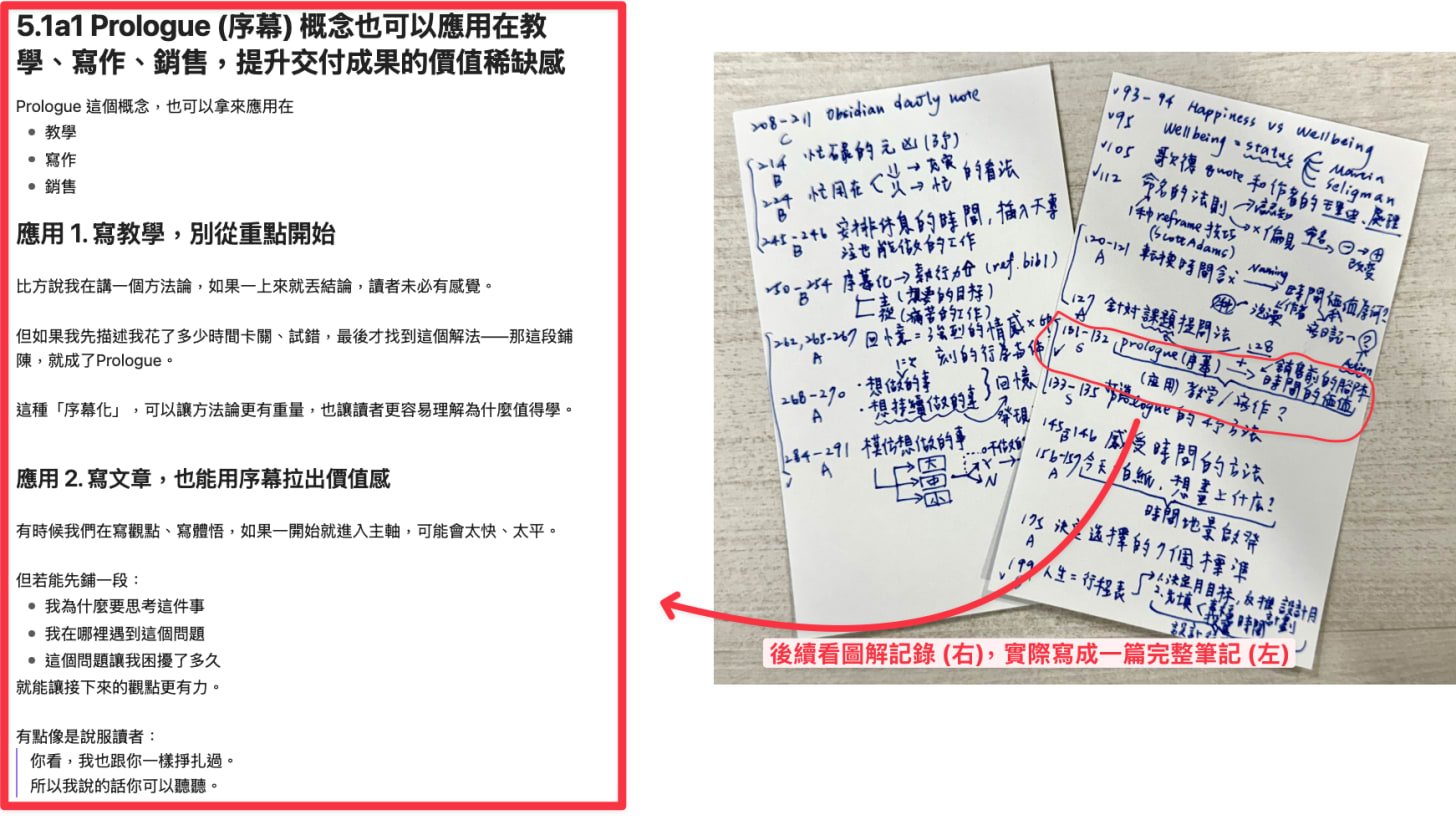 5.1a1 Prologue (序幕) 概念也可以應用在教
學、寫作、銷售，提升交付成果的價值稀缺感
Prologue 這個概念，也可以拿來應用在
• 教學
• 寫作
• 銷售
應用 1. 寫教學，別從重點開始
比方說我在講一個方法論，如果一上來就丟結論，讀者未必有感覺。
但如果我先描述我花了多少時間卡關、試錯，最後才找到這個解法——那這段鋪
陳，就成了Prologue。
這種「序幕化」，可以讓方法論更有重量，也讓讀者更容易理解為什麼值得學。
應用 2. 寫文章，也能用序幕拉出價值感
有時候我們在寫觀點、寫體悟，如果一開始就進入主軸，可能會太快、太平。
但若能先鋪一段：
• 我為什麼要思考這件事
• 我在哪裡遇到這個問題
• 這個問題讓我困擾了多久
就能讓接下來的觀點更有力。
有點像是說服讀者：
你看，我也跟你一樣掙扎過。
所以我說的話你可以聽聽。
208-211 Obsidian daily note
C
214 忙碌的元凶(3つ)
B
224 忙用在 的看法
B
245-246 安排休息的時間，插入不專
B 注也能做的工作
250-254 序幕化→執行力 (ref. bib1)
B 主(想要的目標)
從(痛苦的工作)
262, 265-267 回憶=強烈的情感×
A 刻的行為
268-270 ·想做的事 回憶
A ·想持續做的事 發現
284-291 模仿想做的事
A 大
中 Y
小 N
v93-94 Happiness vs Wellbeing
v95 Wellbeing = status Martin
Seligman
v105 quote 和作者的理由、處理
v112 命名的法則 →認知
→×偏見 命名 ⊖→⊕
1種reframe技巧 改變
(Scott Adams)
120-121 轉換時間含意 Naming 時間価值
A
127 針對課題提問法
A
131-132 prologue (序幕) + 128 銷售前的鋪陳
S → 時間的價值
(應用) 教學/寫作？
133-135 打造prologue的4个方法
S
145-146 感受時間的方法
B
156-157 今天=白紙，想畫上什麼？
A 時間地景啟發
175 決定選擇的7個標準
A
199 人生=行程表 1.決定月目標，反推設計月
計劃
後續看圖解記錄 (右)，實際寫成一篇完整筆記 (左)